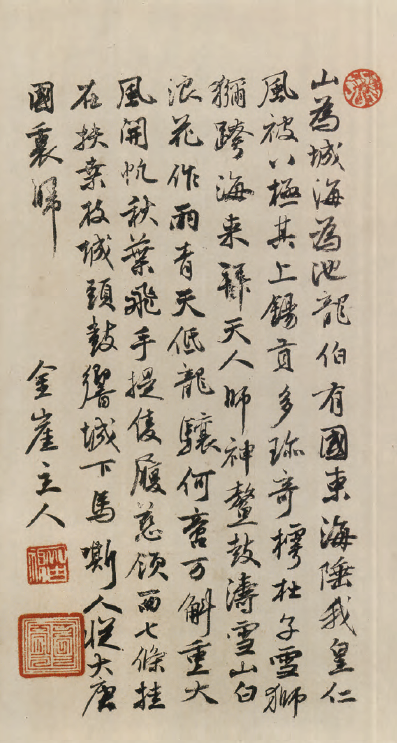 山為城海為池龍伯有國東海陲我皇仁
風被八極其上錫貢多珍奇樗杜子雪獅
獼跨海来辭天人師神鼇鼓濤雪山白
浪花作雨青天低龍驤何啻万斛重大
風開帆秋葉飛手提隻履葱領西七條挂
在扶桒枝城頭鼓響城下馬嘶人從大唐
國裏歸
金崖主人